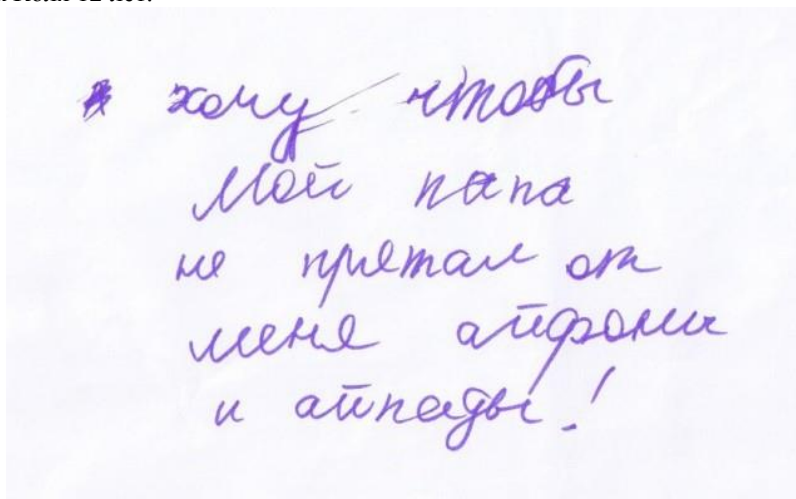 хочу чтобы
Мой папа
не прятал от
меня айфоны
и айпады!